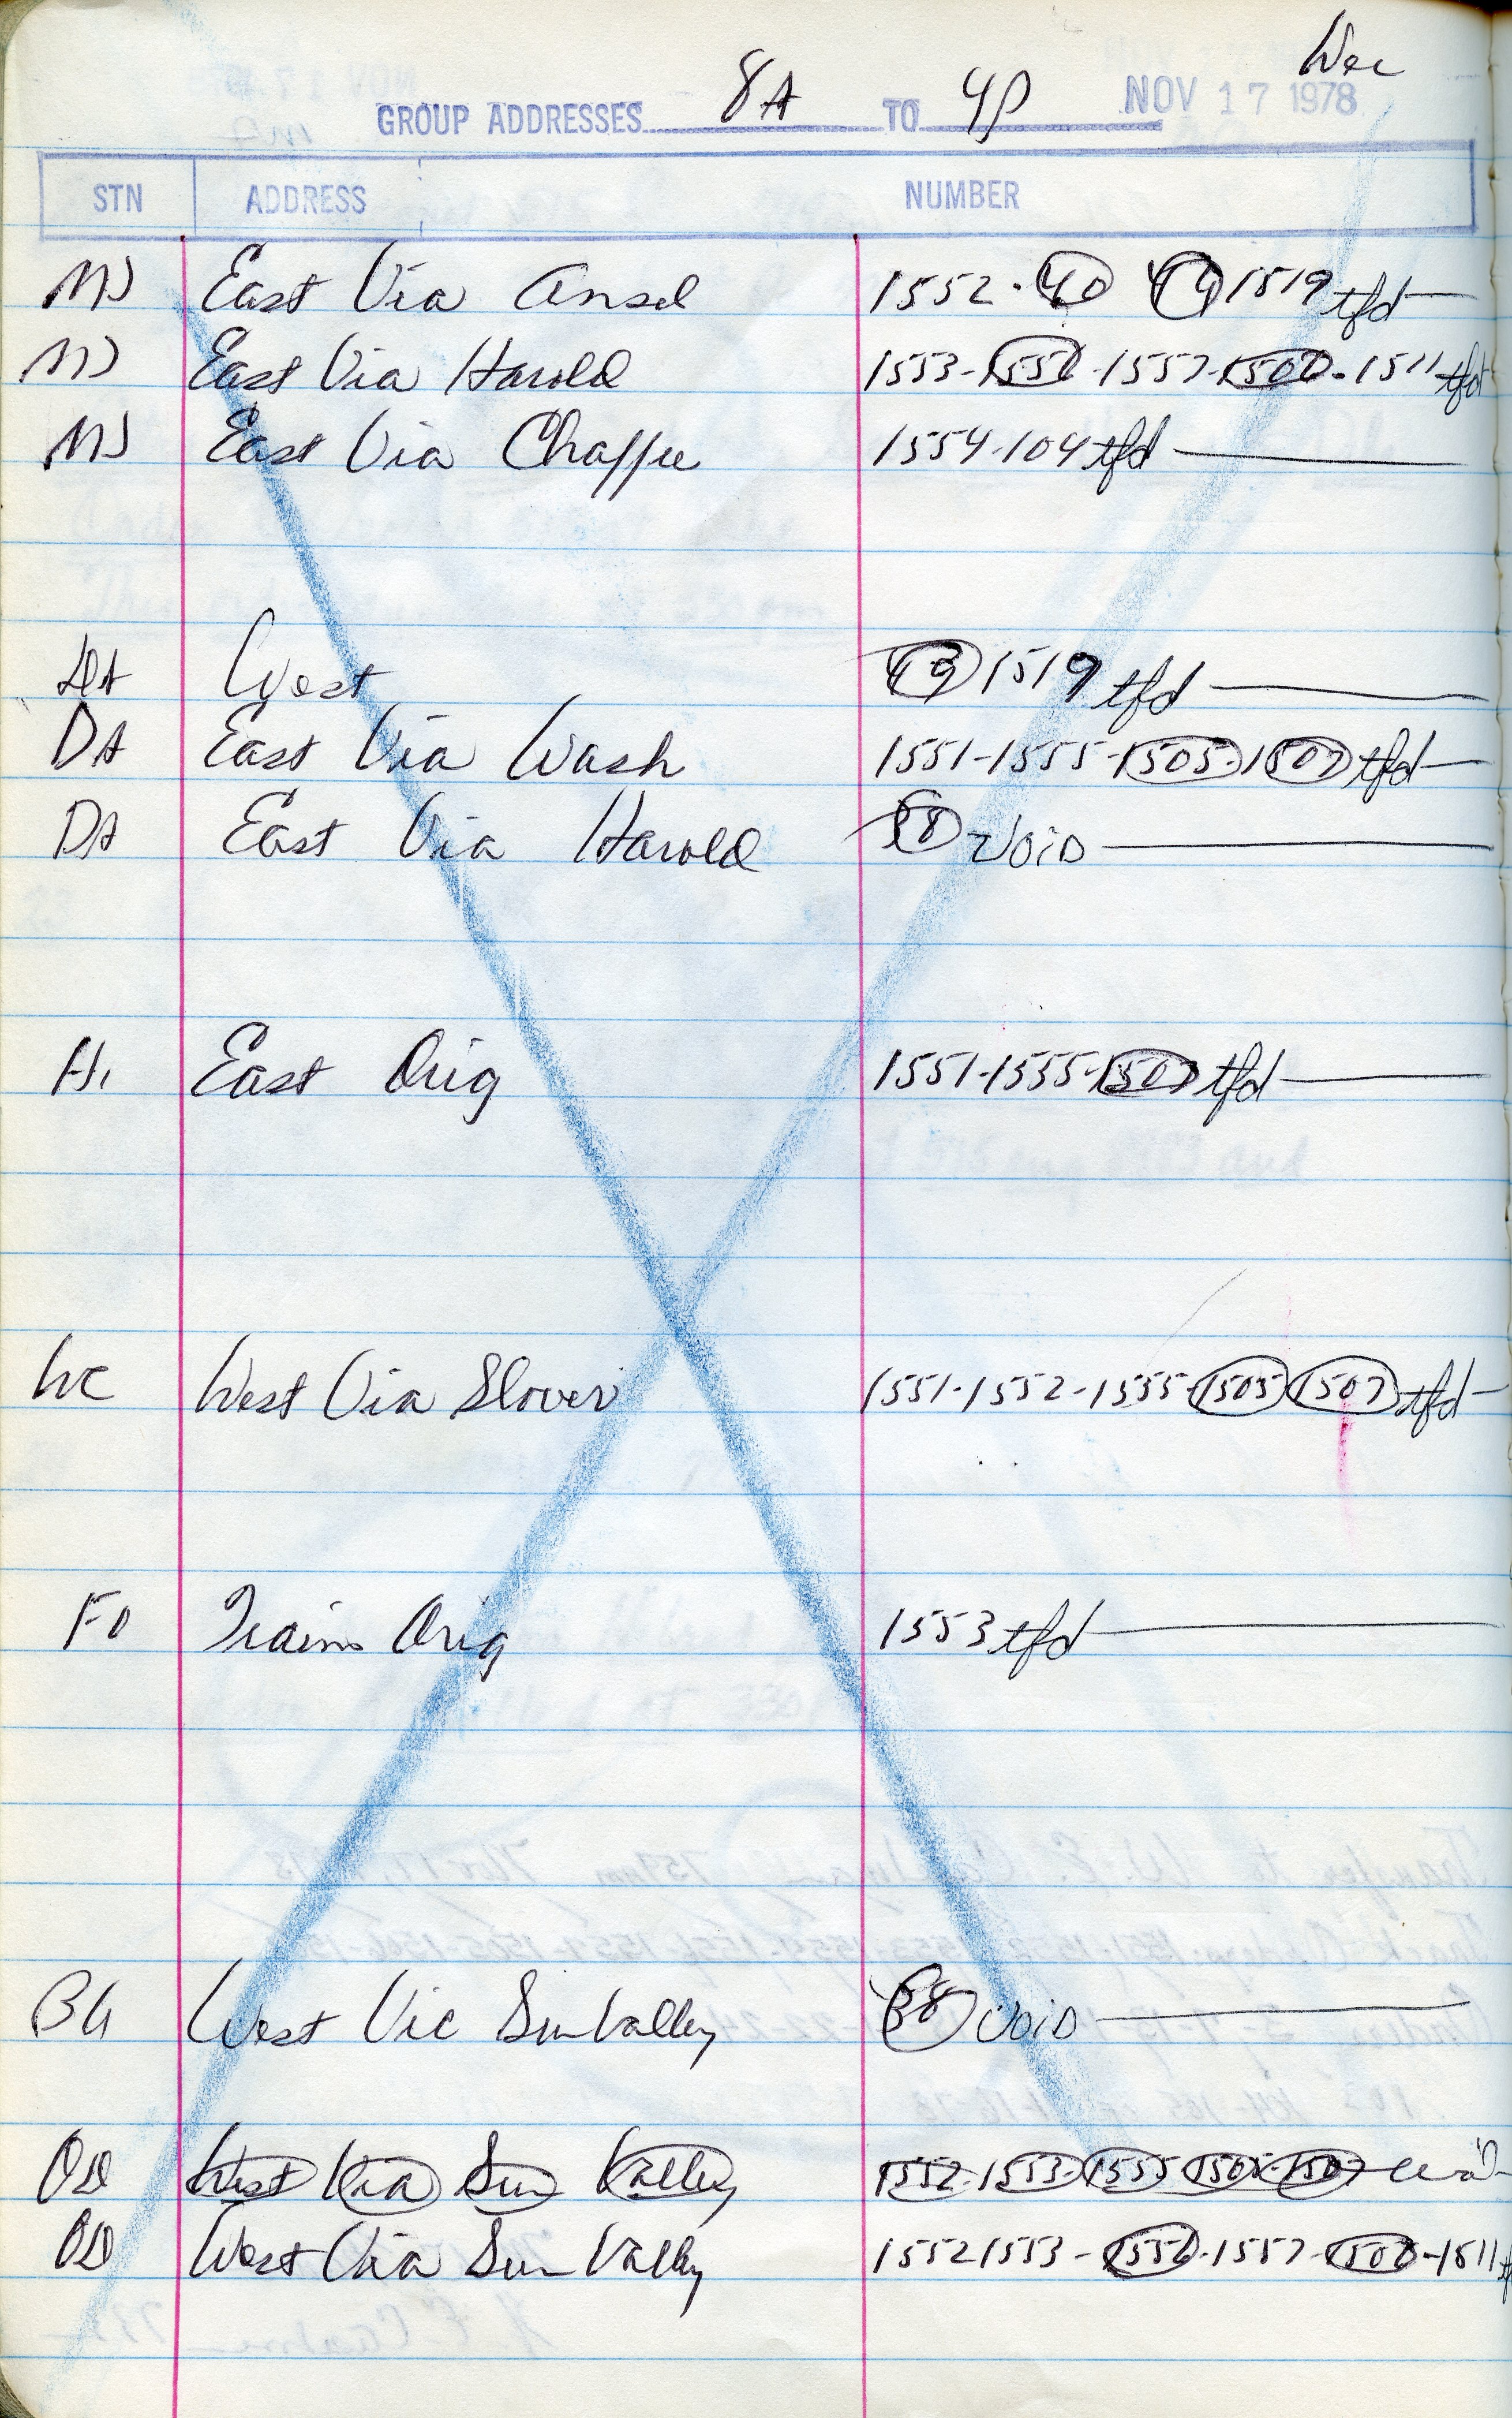 Wec
GROUP ADDRESSES 8A TO 4P NOV 17 1978
STN ADDRESS NUMBER
MJ East Via Ansel 1552 - 40 49 1519 tfd
MJ East Via Harold 1553-1556-1557-1506-1511 tfd
MJ East Via Chaffee 1554-104 tfd
DA West 49 1519 tfd
DA East Via Wash 1551-1555-1505-1507 tfd
DA East Via Harold 38 Void
HI East Orig 1551-1555-1507 tfd
WC West Via Slover 1551-1552-1555-1505 1507 tfd
FO Trains Orig 1553 tfd
BG West Via Sun Valley 38 Void
OD West Via Sun Valley 1552-1553-1555-1505-1507
OD West Via Sun Valley 1552 1553-1556-1557-1506-1511